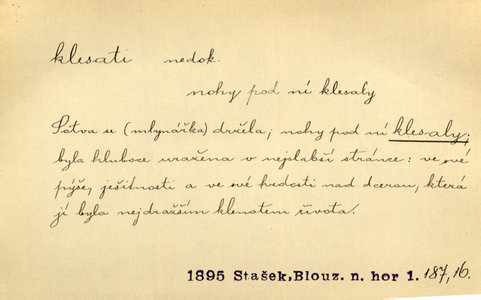 klesati nedok.
nohy pod ní klesaly
Sotva se (mlynářka) držela; nohy pod ní klesaly;
byla hluboce uražena v nejslabší stránce: ve své
pýše, ješitnosti a ve své hrdosti nad dcerou, která
jí byla nejdražším klenotem života.
1895 Stašek, Blouz. n. hor 1. 187,16.